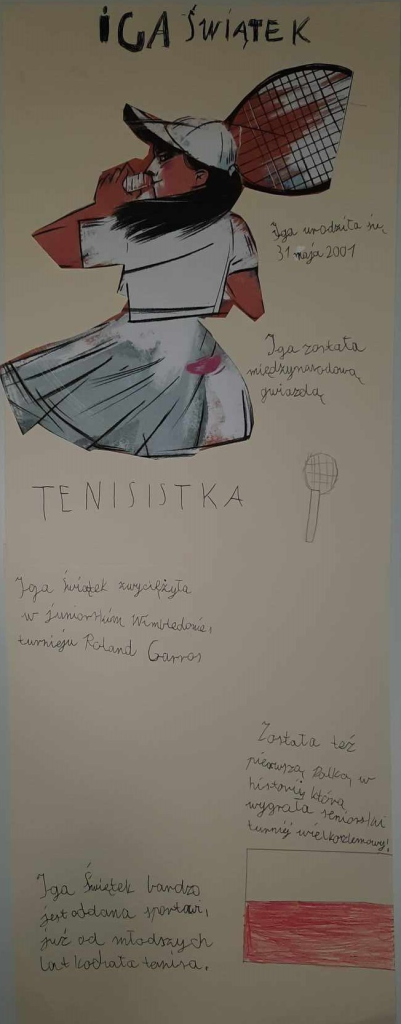 IGA ŚWIĄTEK
Iga urodziła się
31 maja 2001
Iga została
międzynarodową
gwiazdą
TENISISTKA
Iga Świątek zwyciężyła
w juniorskim Wimbledonie,
turnieju Roland Garros
Została też
pierwszą Polką w
historii, która
wygrała seniorski
turniej wielkoszlemowy!
Iga Świątek bardzo
jest oddana sportowi,
już od młodszych
lat kochała tenisa.